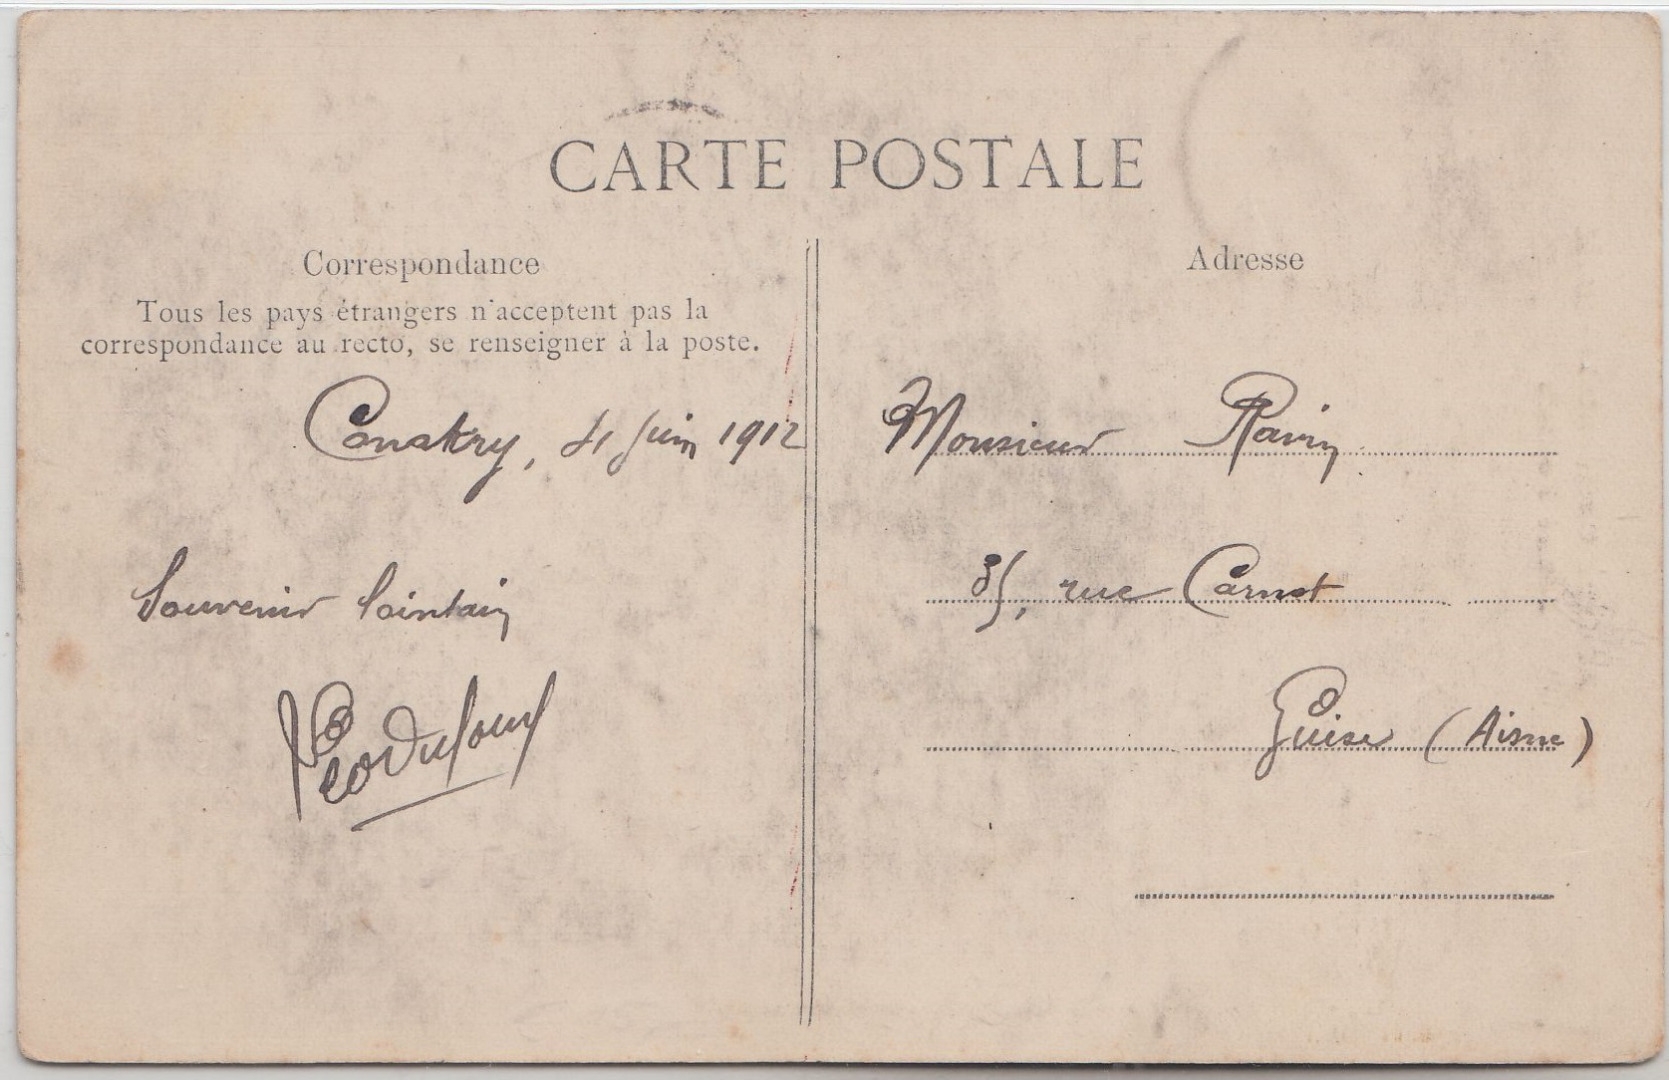 CARTE POSTALE
Correspondance
Tous les pays étrangers n'acceptent pas la
correspondance au recto, se renseigner à la poste.
Conakry, 4 Juin 1912
Souvenir lointain
Léo Dufour
Adresse
Monsieur Ravin
35, rue Carnot
Guise (Aisne)